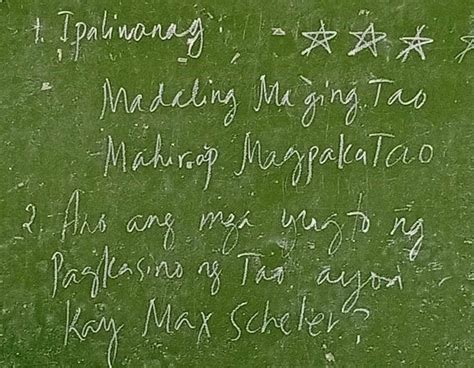 1. Ipaliwanag
Madaling Maging Tao
Mahirap Magpakatao
2. Ano ang mga yugto ng
Pagkasino ng Tao ayon
Kay Max Scheler?